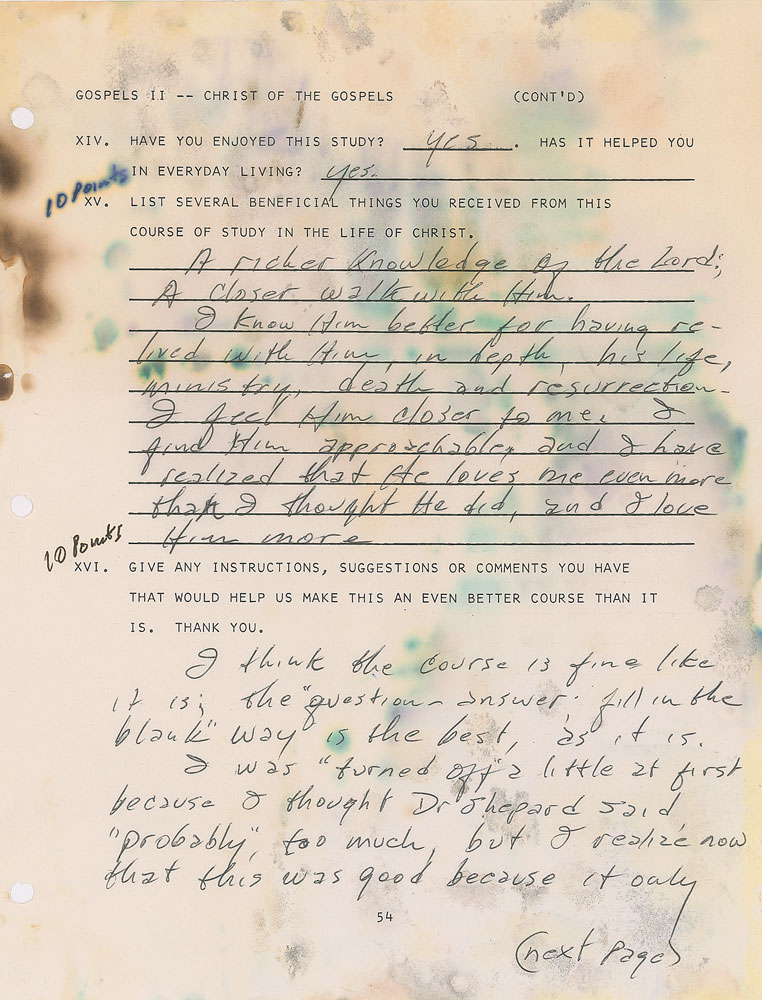 GOSPELS II -- CHRIST OF THE GOSPELS (CONT'D)
XIV. HAVE YOU ENJOYED THIS STUDY? yes. HAS IT HELPED YOU
IN EVERYDAY LIVING? yes.
10 Points
XV. LIST SEVERAL BENEFICIAL THINGS YOU RECEIVED FROM THIS
COURSE OF STUDY IN THE LIFE OF CHRIST.
A richer Knowledge of the Lord;
A closer walk with Him.
I know Him better for having re-
lived with Him, in depth, his life,
ministry, death and resurrection.
I feel Him closer to me. I
find Him approachable, and I have
realized that He loves me even more
than I thought He did, and I love
Him more
10 Points
XVI. GIVE ANY INSTRUCTIONS, SUGGESTIONS OR COMMENTS YOU HAVE
THAT WOULD HELP US MAKE THIS AN EVEN BETTER COURSE THAN IT
IS. THANK YOU.
I think the course is fine like
it is; the "question - answer - fill in the
blank" way is the best, as it is.
I was "turned off" a little at first
because I thought Dr Shepard said
"probably", too much, but I realize now
that this was good because it only
54
(next page)